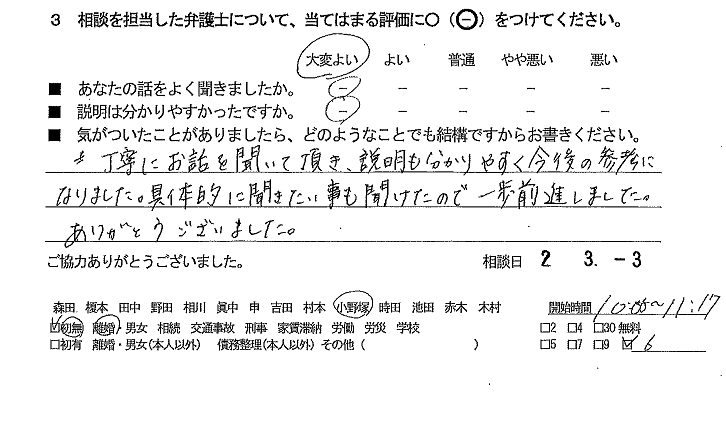 3 相談を担当した弁護士について、当てはまる評価に○(㊀)をつけてください。
大変よい よい 普通 やや悪い 悪い
■ あなたの話をよく聞きましたか。 － － － － －
■ 説明は分かりやすかったですか。 － － － － －
■ 気がついたことがありましたら、どのようなことでも結構ですからお書きください。
* 丁寧にお話を聞いて頂き、説明も分かりやすく今後の参考に
なりました。具体的に聞きたい事も聞けたので一歩前進しました。
ありがとうございました。
ご協力ありがとうございました。 相談日 2 3. -3
森田 榎本 田中 野田 相川 眞中 申 吉田 村本 小野塚 時田 池田 赤木 木村 開始時間 10:05～11:17
☑初無 離婚・男女 相続 交通事故 刑事 家賃滞納 労働 労災 学校 □2 □4 □30無料
□初有 離婚・男女(本人以外) 債務整理(本人以外) その他( ) □5 □7 □9 ☑ 6